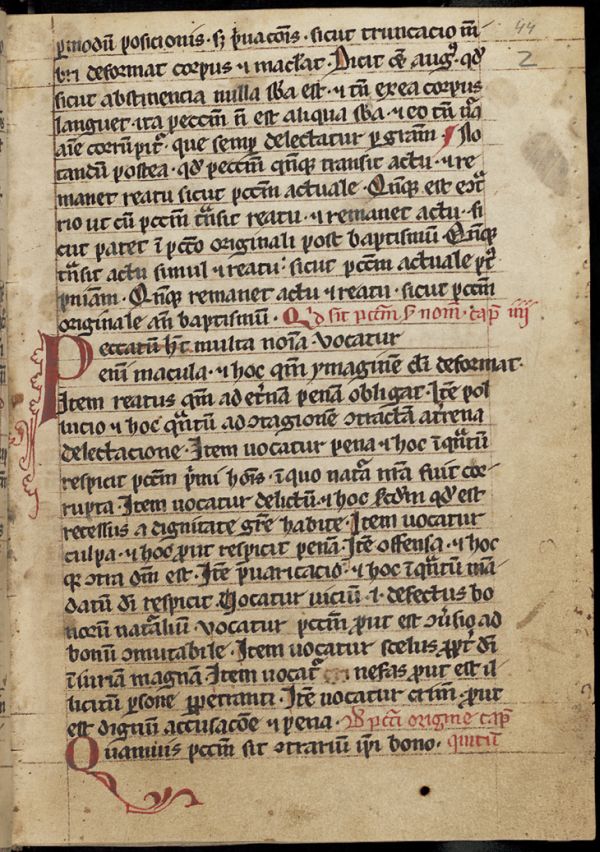 44
2
ꝑmodū posicionis · sꝫ p̄uacōis · sicut truncacio m̄
bri deformat corpus ⁊ mac̄lat · Dicit em̄ aug⁹ · qd̛
sicut abstinencia nulla sb̄a est · ⁊ tn̄ ex ea corpus
languet · ita pecc̄m n̄ est aliqua sb̄a · ⁊ eo tn̄
aīe corrūpit᷑ · que semꝑ delectatur ꝑ gr̄am · No
tandū postea · qd̛ pecc̄m qn̄qꝫ transit actu · ⁊ re
manet reatu sicut pcc̄m actuale · Qn̄qꝫ est ecͣ
rio ut cū pcc̄m tͣsit reatu · ⁊ remanet actu · si
cut patet ī pcc̄o originali post baptismū · Qn̄qꝫ
tͣnsit actu simul ⁊ reatu · sicut pcc̄m actuale pꝰ
pn̄iam · Qn̄qꝫ remanet actu ⁊ reatu · sicut pcc̄m
originale an̄ baptismū · Qd̛ sit pcc̄m s̄ nom̄ · cap̄ iiij
Peccatū hꝫ multa noīa · vocatur
enī macula · ⁊ hoc qm̄ ymaginem dī deformat ·
Item reatus qm̄ ad et̄nam penā obligat · Itē pol
lucio ⁊ hoc qͣtū ad ꝯtagionē ꝯtractā a t̄rena
delectacione · Item uocatur pena ⁊ hoc ī qͣtū
respicit pcc̄m p̄mi hoīs · ī quo nat᷑a nr̄a fuit cor
rupta · Item uocatur delictū · ⁊ hoc sc̄dm qd̛ est
recessus a dignitate gr̄e habite · Item uocatur
culpa · ⁊ hoc ꝓut respicit penā · Itē offensa · ⁊ hoc
qꝛ ꝯtra dm̄ est · Itē p̄uaricacio · ⁊ hoc ī qͣtū mā
datū dī respicit · Uocatur uiciū · i · defectus bo
norū nat᷑aliū · vocatur pcc̄m ꝓut est ꝯūsio ad
bonū ꝯmutabile · Item uocatur scelus ꝓpt̄ dī
īiuriam magnā · Item uocat᷑ nefas ꝓut est il
licitū ꝑsone ꝑpetranti · Itē vocatur crīm ꝓut
est dignū accusacōe ⁊ pena · De pccͣi origine cap̄
Quamuis pcc̄m sit ꝯtrariū ip̄i bono · quītū